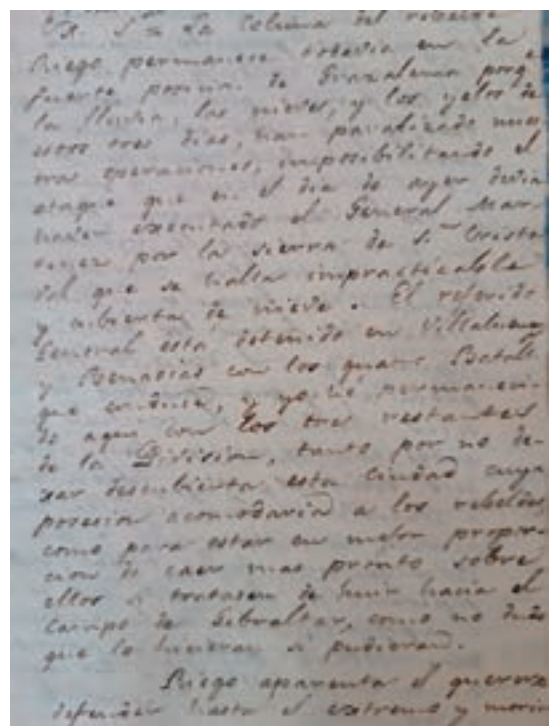 Ex. Sor La columna del rebelde
Riego permanece todavia en la
fuerte posicion de Grazalema porqe
la lluvia, las nieves, y los yelos de
estos tres dias, han paralizado nues
tras operaciones, imposibilitando el
ataque que en el dia de ayer devia
haver executado el General Mar
tinez por la sierra de Sn Cristo
val que se halla impracticable
y cubierta de nieve. El referido
General esta detenido en Villaluenga
y Benaocaz con los quatro Batall
que conduce, y yo he permaneci
do aqui con los tres restantes
de la Division, tanto por no de
xar descubierta esta Ciudad cuya
posesion acomodaria a los rebeldes,
como para estar en mejor propor-
cion de caer mas pronto sobre
ellos si tratasen de huir hacia el
Campo de Gibraltar, como no dudo
que lo hicieran si pudieran.
Riego aparenta el quererse
defender hasta el extremo y morir